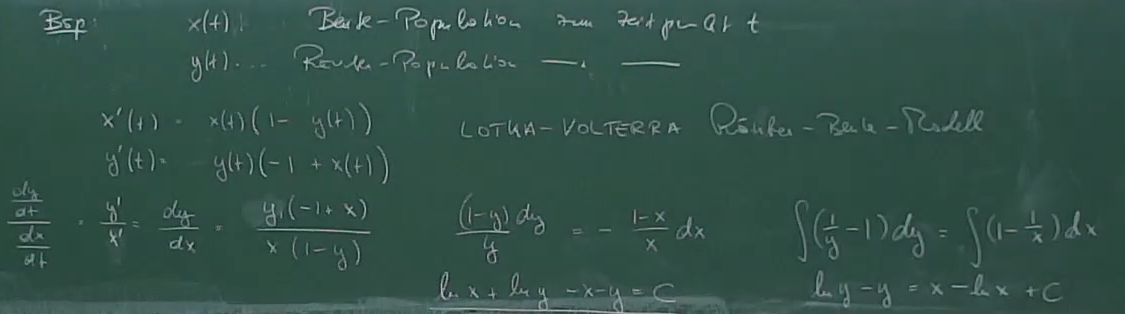 Bsp: x(t): Beute-Population zum Zeitpunkt t
y(t)... Räuber-Population —.—
x'(t) = x(t)(1 - y(t))
LOTKA-VOLTERRA Räuber-Beute-Modell
y'(t) = y(t)(-1 + x(t))
(dy/dt)/(dx/dt) = y'/x' = dy/dx = y·(-1+x)/(x(1-y))
(1-y)dy/y = - (1-x)/x dx
∫(1/y - 1)dy = ∫(1 - 1/x)dx
ln x + ln y - x - y = C
ln y - y = x - ln x + C